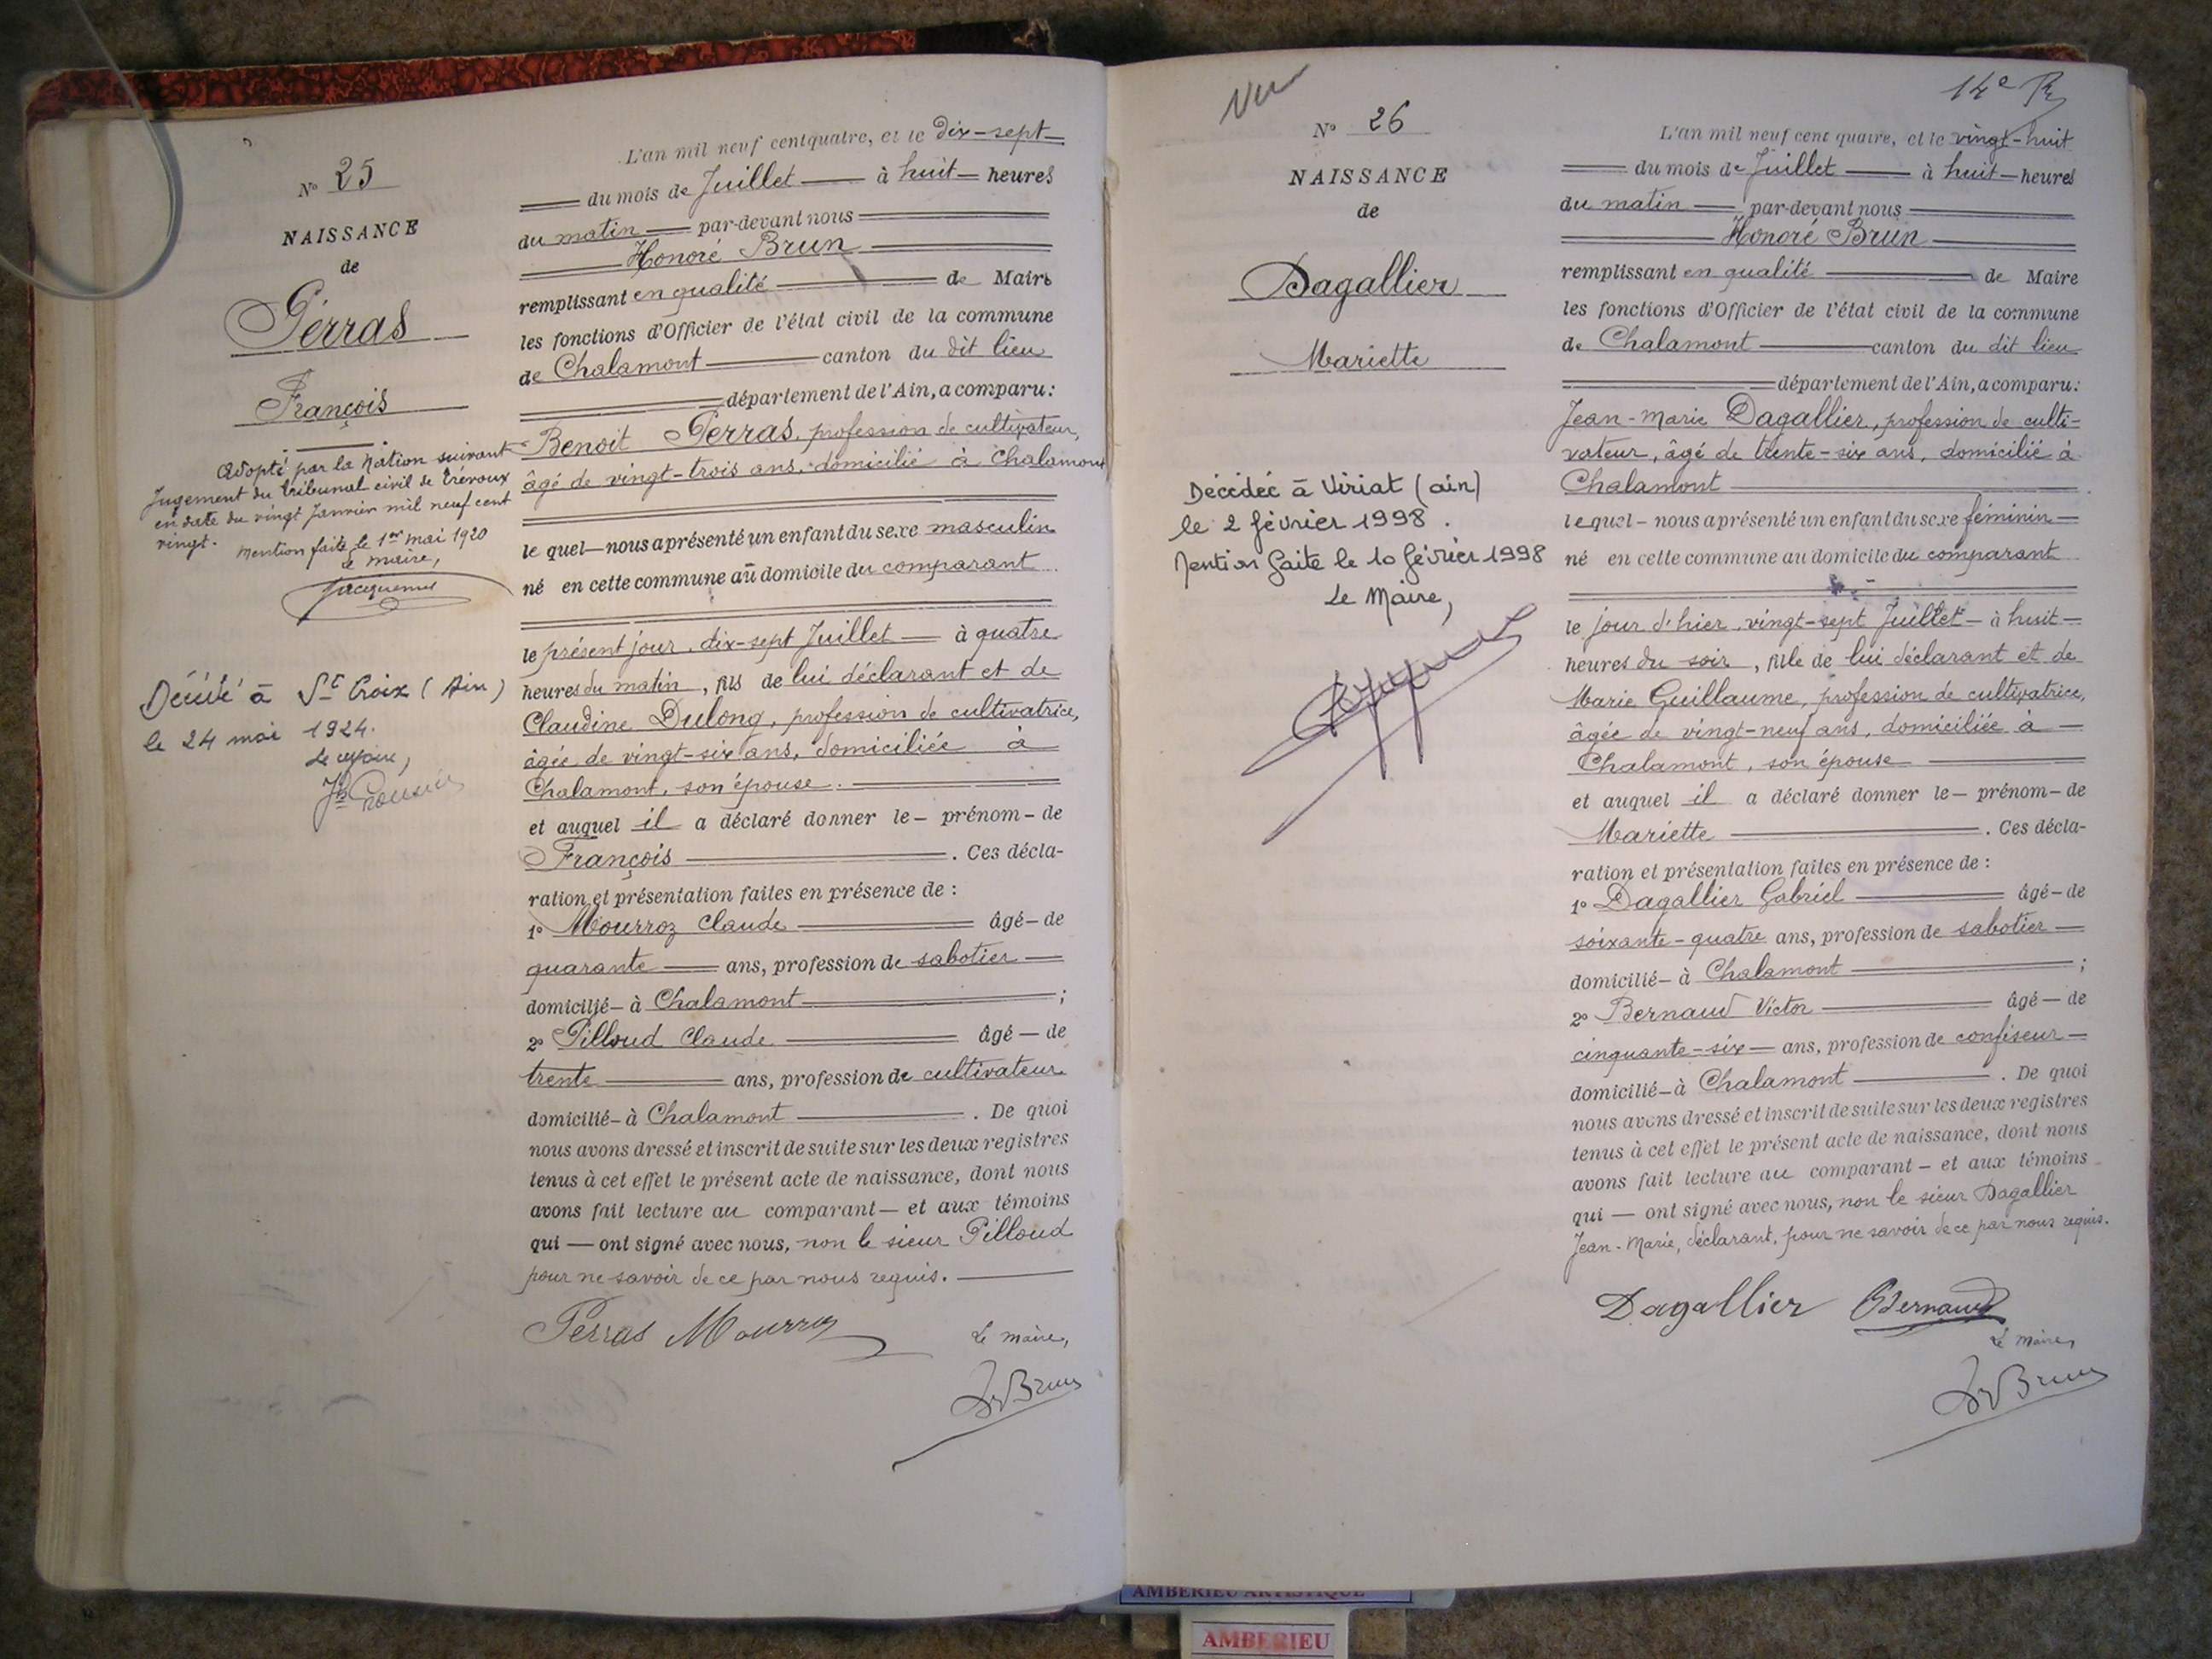 Nº 25
NAISSANCE
de
Perras
François
Adopté par la Nation suivant
Jugement du tribunal civil de Trévoux
en date du vingt Janvier mil neuf cent
vingt.
Mention faite le 1er mai 1920
Le maire,
Jacquemet
Décédé à Ste Croix (Ain)
le 24 mai 1924.
Le maire,
L'an mil neuf cent quatre, et le dix-sept
du mois de Juillet à huit heures
du matin par-devant nous
Honoré Brun
remplissant en qualité de Maire
les fonctions d'Officier de l'état civil de la commune
de Chalamont canton du dit lieu
département de l'Ain, a comparu:
Benoit Perras, profession de cultivateur,
âgé de vingt-trois ans, domicilié à Chalamont
lequel nous a présenté un enfant du sexe masculin
né en cette commune au domicile du comparant
le présent jour, dix-sept Juillet à quatre
heures du matin, fils de lui déclarant et de
Claudine Dulong, profession de cultivatrice,
âgée de vingt-six ans, domiciliée à
Chalamont, son épouse.
et auquel il a déclaré donner le prénom de
François. Ces décla-
ration et présentation faites en présence de :
1º Mourroz Claude âgé de
quarante ans, profession de sabotier
domicilié à Chalamont ;
2º Pilloud Claude âgé de
trente ans, profession de cultivateur
domicilié à Chalamont. De quoi
nous avons dressé et inscrit de suite sur les deux registres
tenus à cet effet le présent acte de naissance, dont nous
avons fait lecture au comparant et aux témoins
qui ont signé avec nous, non le sieur Pilloud
pour ne savoir de ce par nous requis.
Perras Mourroz Le maire,
Hré Brun
Vu
14e
Nº 26
NAISSANCE
de
Dagallier
Mariette
Décédée à Viriat (ain)
le 2 février 1998.
Mention faite le 10 février 1998
Le Maire,
L'an mil neuf cent quatre, et le vingt-huit
du mois de Juillet à huit heures
du matin par-devant nous
Honoré Brun
remplissant en qualité de Maire
les fonctions d'Officier de l'état civil de la commune
de Chalamont canton du dit lieu
département de l'Ain, a comparu:
Jean-Marie Dagallier, profession de culti-
vateur, âgé de trente-six ans, domicilié à
Chalamont
lequel nous a présenté un enfant du sexe féminin
né en cette commune au domicile du comparant
le jour d'hier, vingt-sept Juillet à huit
heures du soir, fille de lui déclarant et de
Marie Guillaume, profession de cultivatrice,
âgée de vingt-neuf ans, domiciliée à
Chalamont, son épouse
et auquel il a déclaré donner le prénom de
Mariette. Ces décla-
ration et présentation faites en présence de :
1º Dagallier Gabriel âgé de
soixante-quatre ans, profession de sabotier
domicilié à Chalamont ;
2º Bernaud Victor âgé de
cinquante-six ans, profession de confiseur
domicilié à Chalamont. De quoi
nous avons dressé et inscrit de suite sur les deux registres
tenus à cet effet le présent acte de naissance, dont nous
avons fait lecture au comparant et aux témoins
qui ont signé avec nous, non le sieur Dagallier
Jean-Marie, déclarant, pour ne savoir de ce par nous requis.
Dagallier Bernaud
Le maire,
Hré Brun
AMBERIEU ARTISTIQUE
AMBERIEU